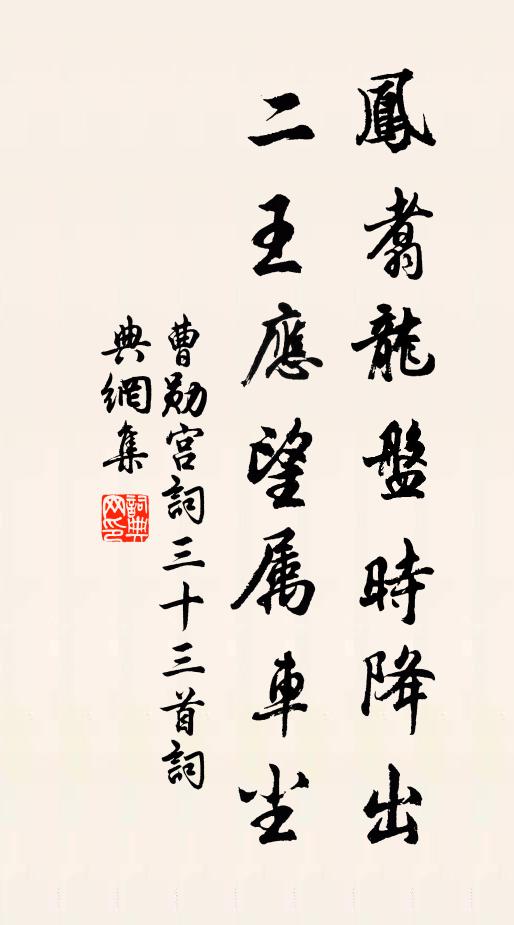 鳳翥龍盤時降出
二王應望属車尘
曹勛宫詞三十三首詞
典網集
詞典
网印